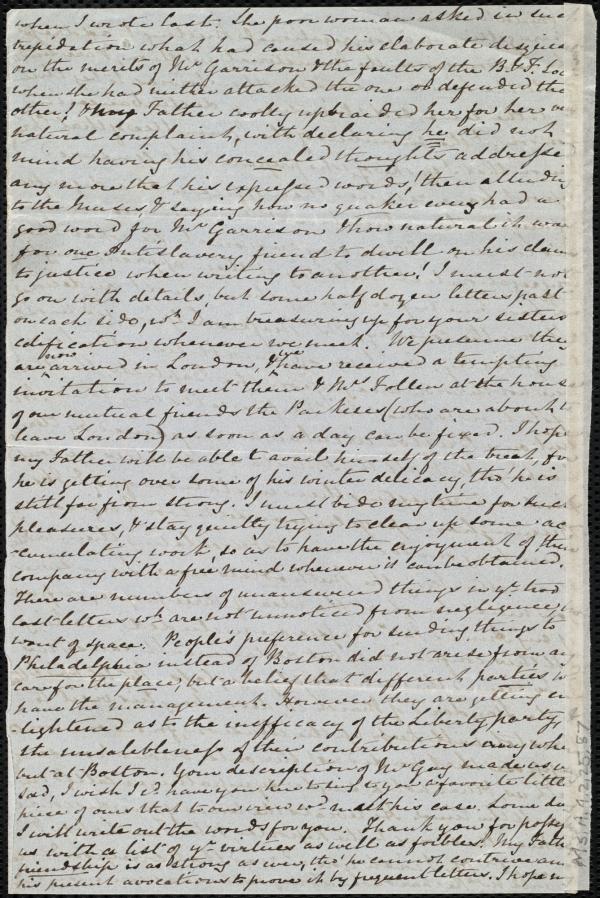 when I wrote last. The poor woman asked in such
trepidation what had caused his elaborate disquis
on the merits of Mr Garrison & the faults of the B. & F. Soc
when she had neither attacked the one or defended the
other! & my Father coolly upbraided her for her un
natural complaint, with declaring he did not
mind having his concealed thoughts addressed
any more that his expressed words! then alluding
to the & saying how no quaker every had a
good word for Mr Garrison & how natural it was
for one Antislavery friend to dwell on his claim
to justice when writing to another! I must not
go on with details, but some half dozen letters past
on each side, wh. I am treasuring up for your sisters
edification whenever we meet. We presume they
are now arrived in London, & we have received a tempting
invitation to meet them & Mrs Follen at the house
of our mutual friends the Parkeses (who are about to
leave London) as soon as a day can be fixed. I hope
my Father will be able to avail himself of the treat, for
he is getting over some of his winter delicacy, tho' he is
still far from strong. I must bide my time for such
pleasures, & stay quietly trying to clear up some ac
-cumulating work, so as to have the enjoyment of their
company with a free mind whenever it can be obtained.
There are numbers of unanswered things in yr. two
last letters wh. are not unnoticed from negligence,
want of space. People's preference for sending things to
Philadelphia instead of Boston did not arise from any
care for the place, but a belief that different parties
have the management. However they are getting en
-lightened as to the inefficacy of the Liberty party,
the unsalebleness of their contributions
but at Boston. Your description of Mr Gay made us
sad, I wish I'd have you here to sing to you a favorite little
piece of ours that to our view wd. meet his case. Some day
I will write out the words for you. Thank you for
us with a list of yr. virtues as well as foibles. My Father's
friendship is as strong as ever, tho' he cannot contrive
his present avocations to prove it by frequent letters. I hope
MS.A.9.2.25.57